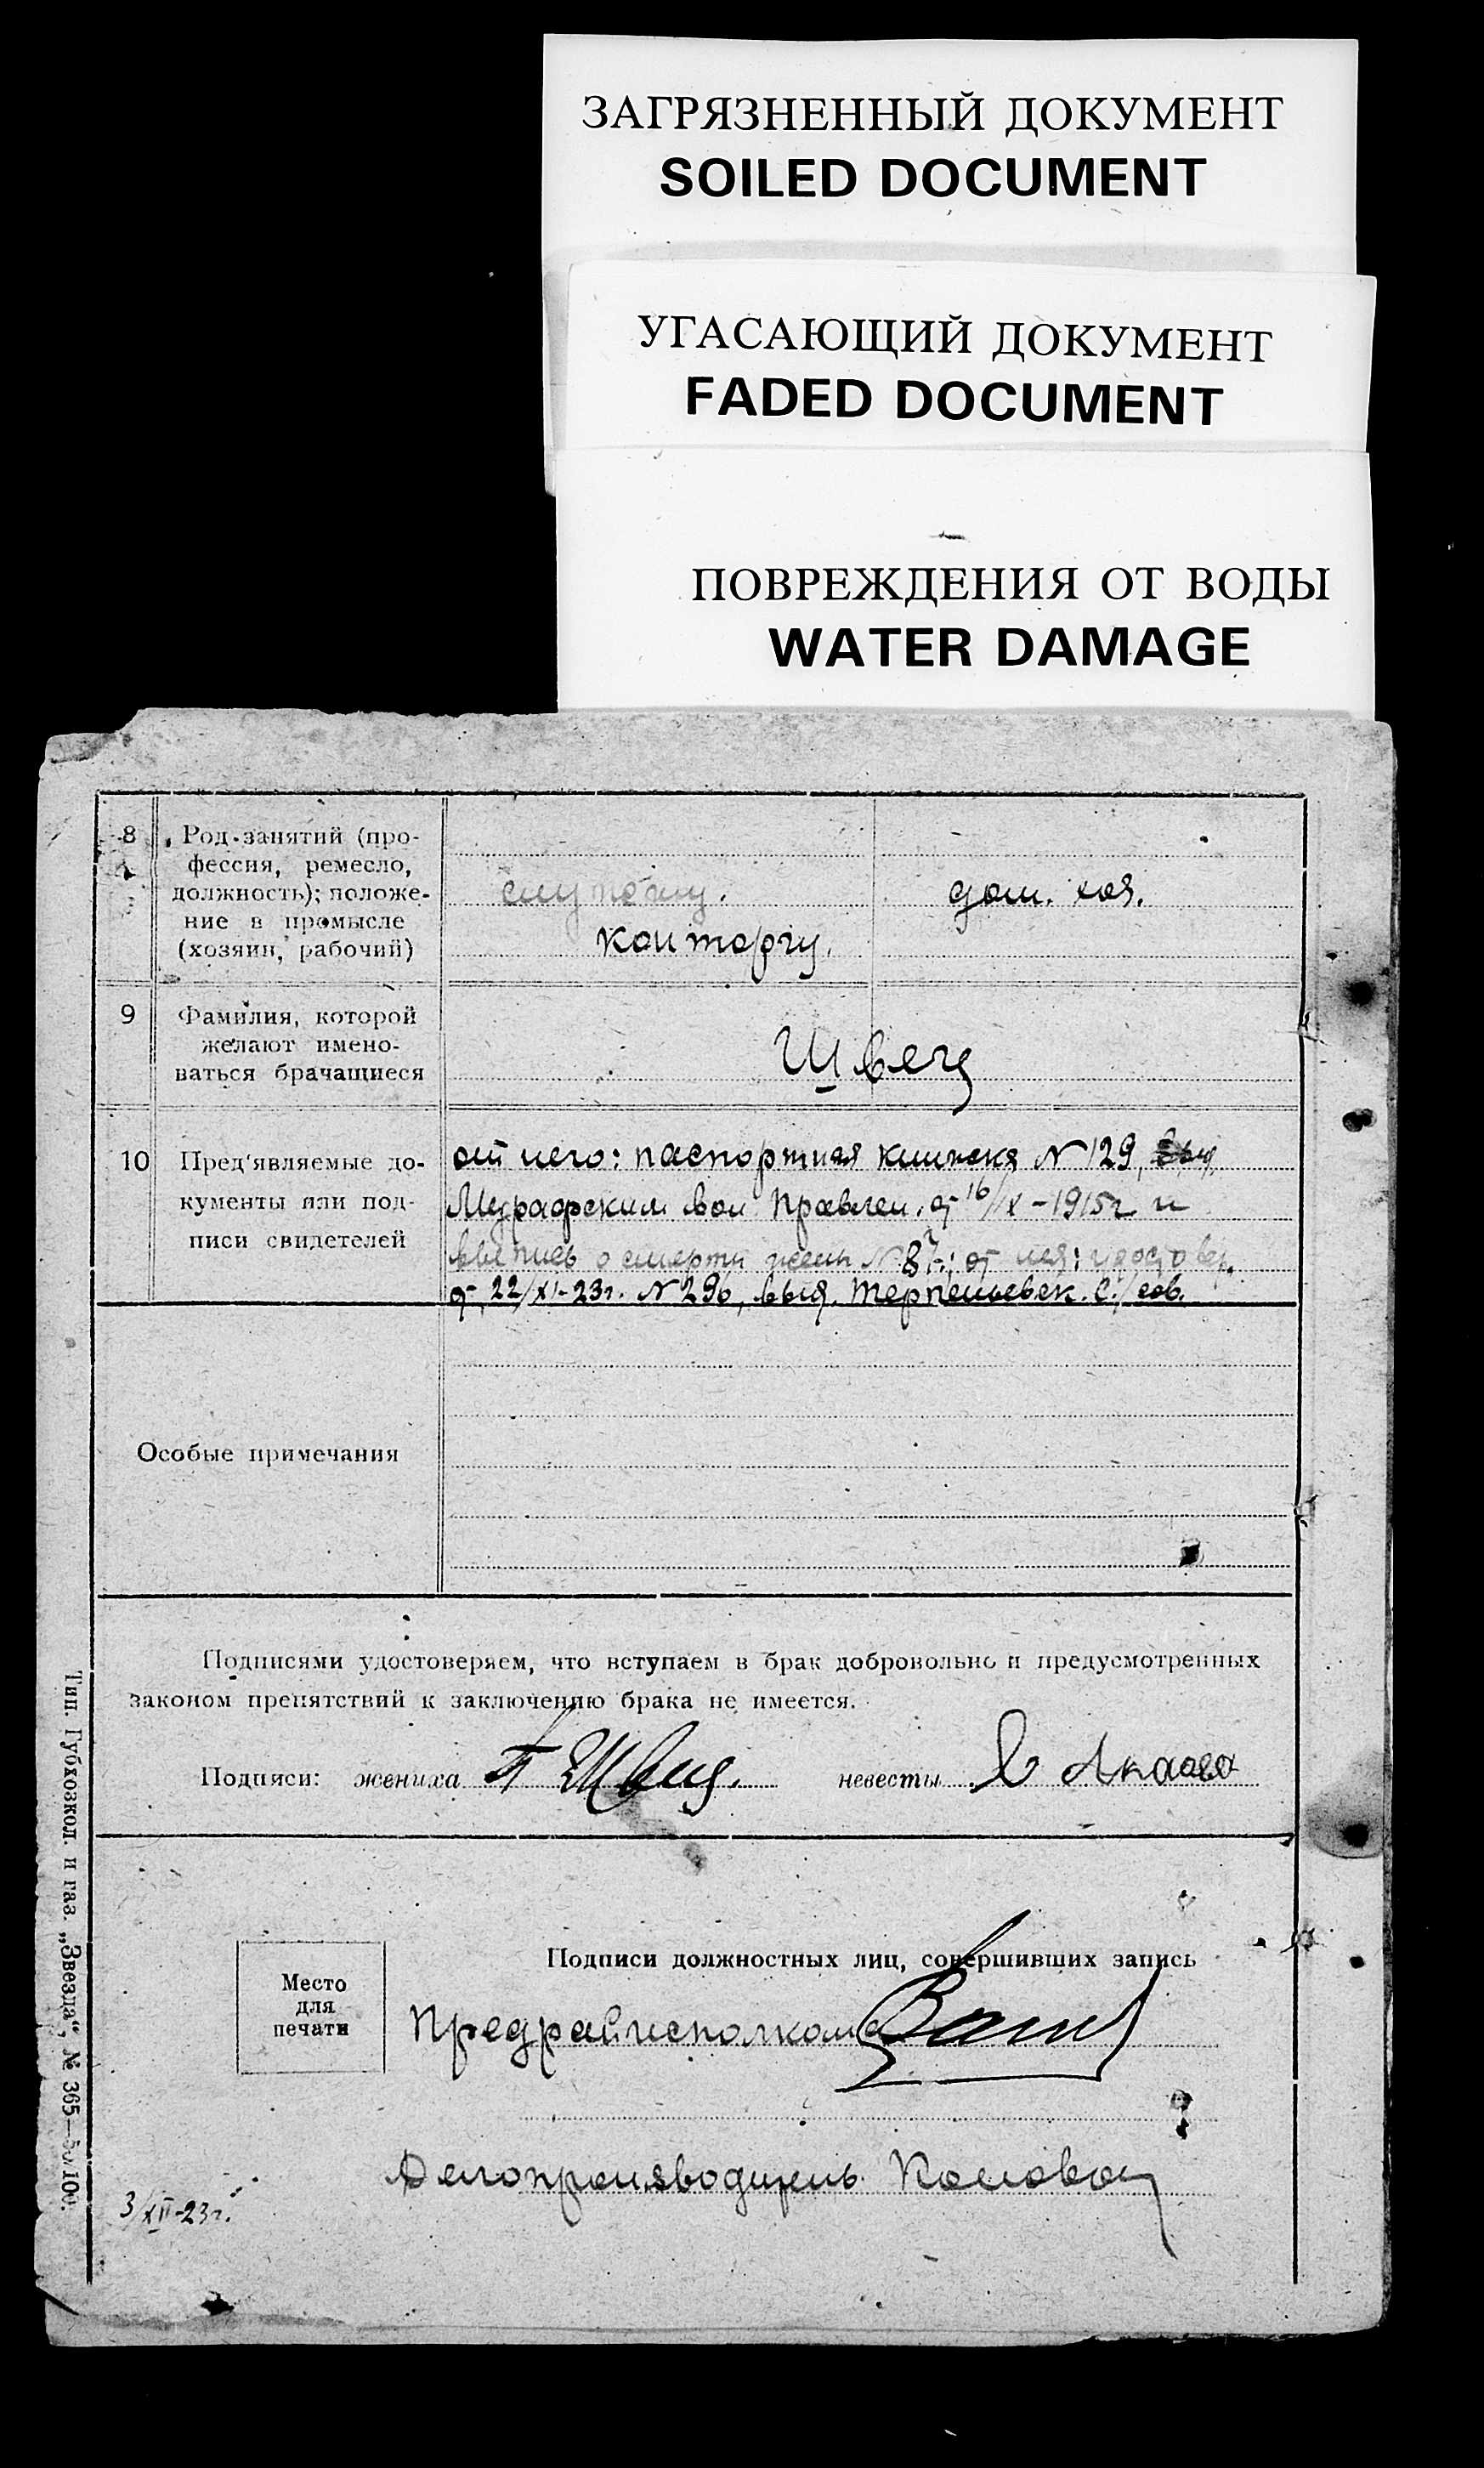 ЗАГРЯЗНЕННЫЙ ДОКУМЕНТ
SOILED DOCUMENT
УГАСАЮЩИЙ ДОКУМЕНТ
FADED DOCUMENT
ПОВРЕЖДЕНИЯ ОТ ВОДЫ
WATER DAMAGE
8 Род занятий (про-
фессия, ремесло,
должность); положе-
ние в промысле
(хозяин, рабочий)
дом. хоз.
9 Фамилия, которой
желают имено-
ваться брачащиеся
Швец
10 Пред'являемые до-
кументы или под-
писи свидетелей
от него: паспортная книжка N 129, выд.
Мурафским вол правлен. от 16/IX-1915г. и
выпись о смерти жены N 87; от нея: удостовер.
от 22/XI-23г. N 296, выд. Терпеньевск. С./сов.
Особые примечания
Подписями удостоверяем, что вступаем в брак добровольно и предусмотренных
законом препятствий к заключению брака не имеется.
Подписи: жениха П Швец. невесты
Подписи должностных лиц, совершивших запись
Место
для
печати
Предрайисполкома
Делопроизводитель
3/XII-23г.
Тип. Губхозкол. и газ. „Звезда“, № 365